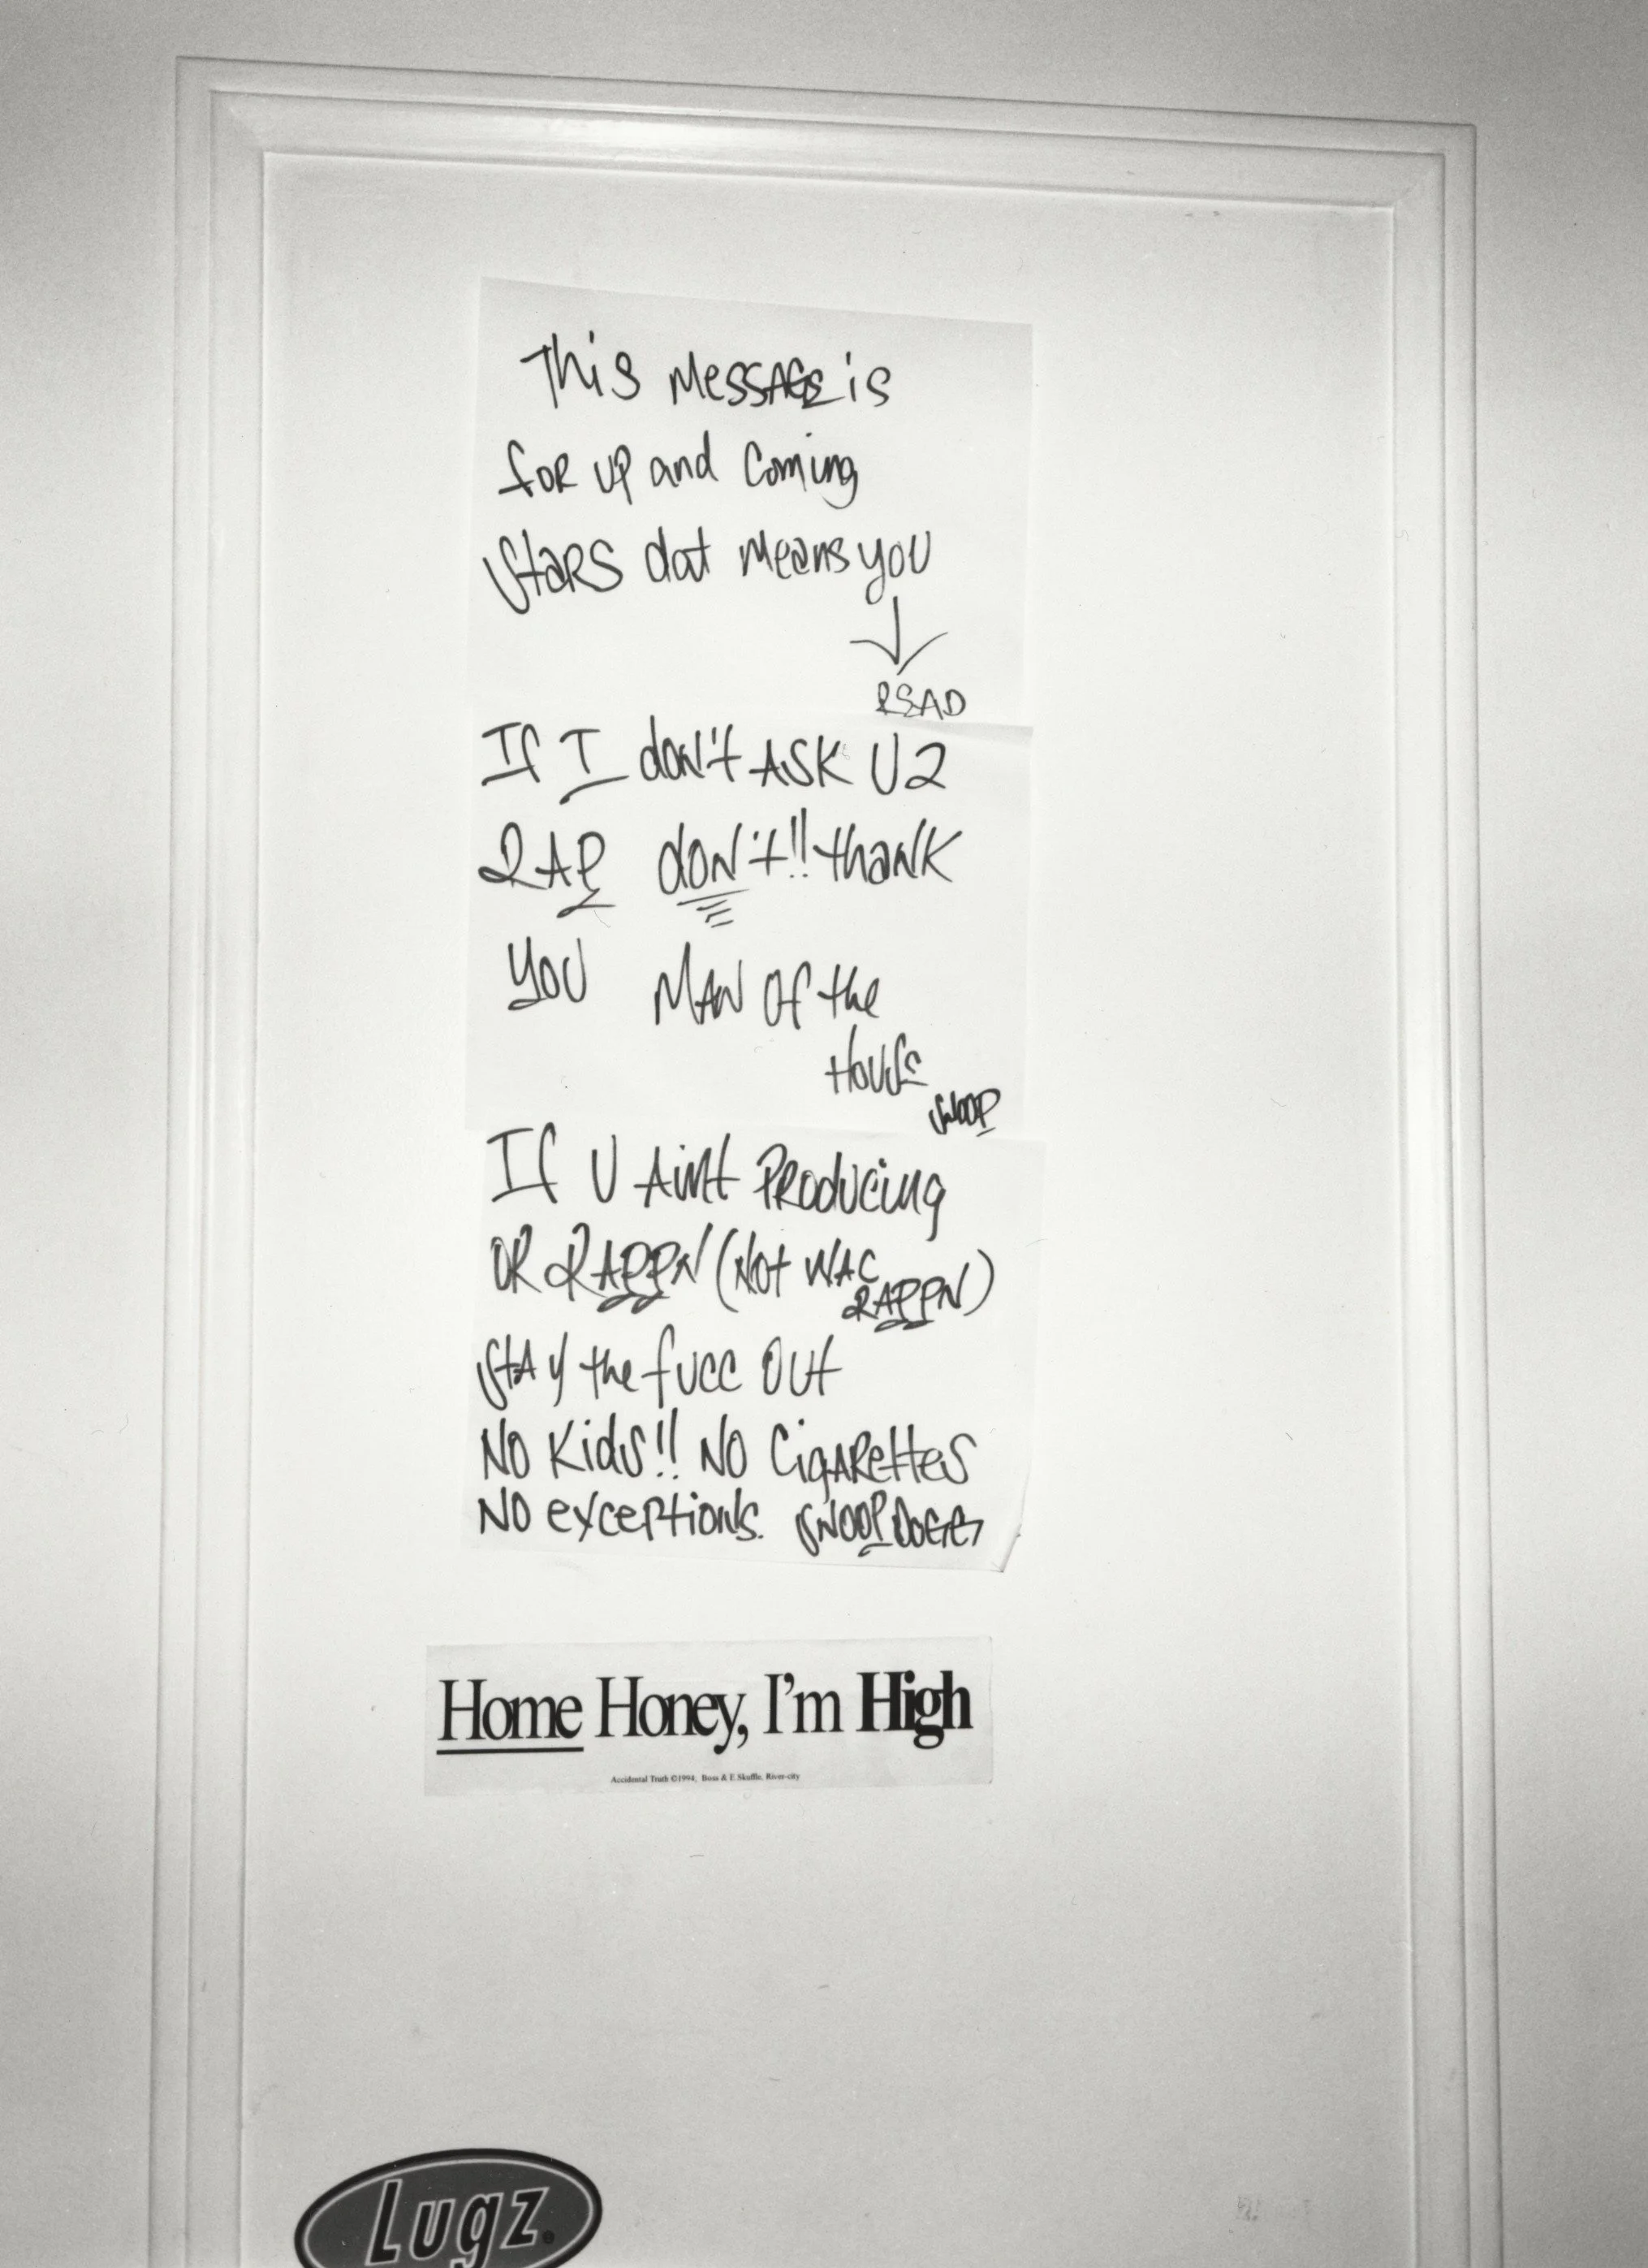 This MessAGe is
foR UP and Coming
StaRS dat Means you
READ
If I don't ASK U 2
RAP don't!! thank
you MAN Of the
House
SNOOP
If U Aint PRoducing
OR RAPPN (Not WAC
RAPPN)
StAy the fucc Out
No Kids!! No CigARettes
No exceptions. SNOOP DOGG
Home Honey, I'm High
Accidental Truth ©1994, Boss & E Skuffle, River-city
Lugz®